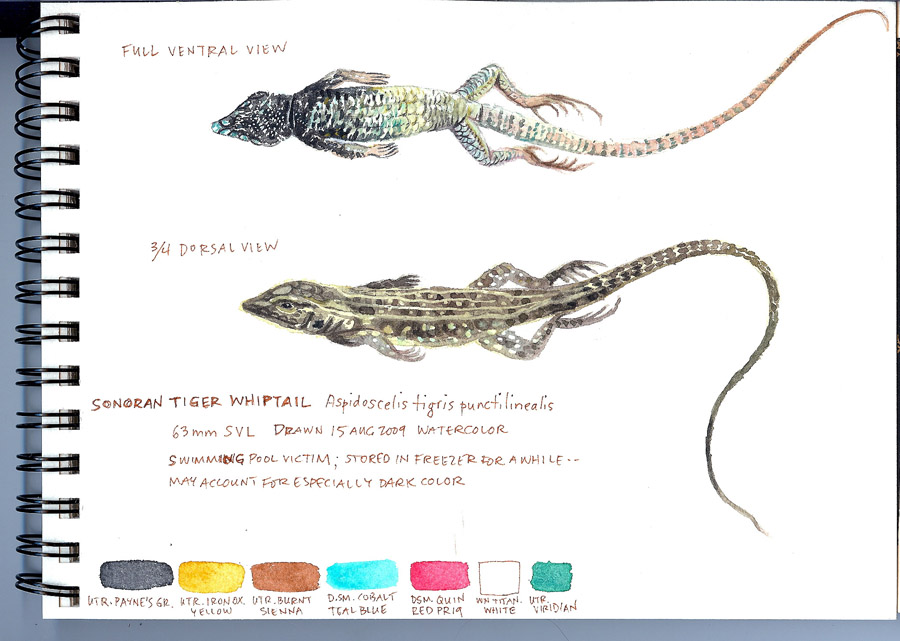 FULL VENTRAL VIEW
3/4 DORSAL VIEW
SONORAN TIGER WHIPTAIL Aspidoscelis tigris punctilinealis
63mm SVL DRAWN 15 AUG 2009 WATERCOLOR
SWIMMING POOL VICTIM; STORED IN FREEZER FOR A WHILE--
MAY ACCOUNT FOR ESPECIALLY DARK COLOR
UTR. PAYNE'S GR.
UTR. IRON OX.
YELLOW
UTR. BURNT
SIENNA
D.SM. COBALT
TEAL BLUE
DSM. QUIN
RED PR19
WN TITAN.
WHITE
UTR
VIRIDIAN